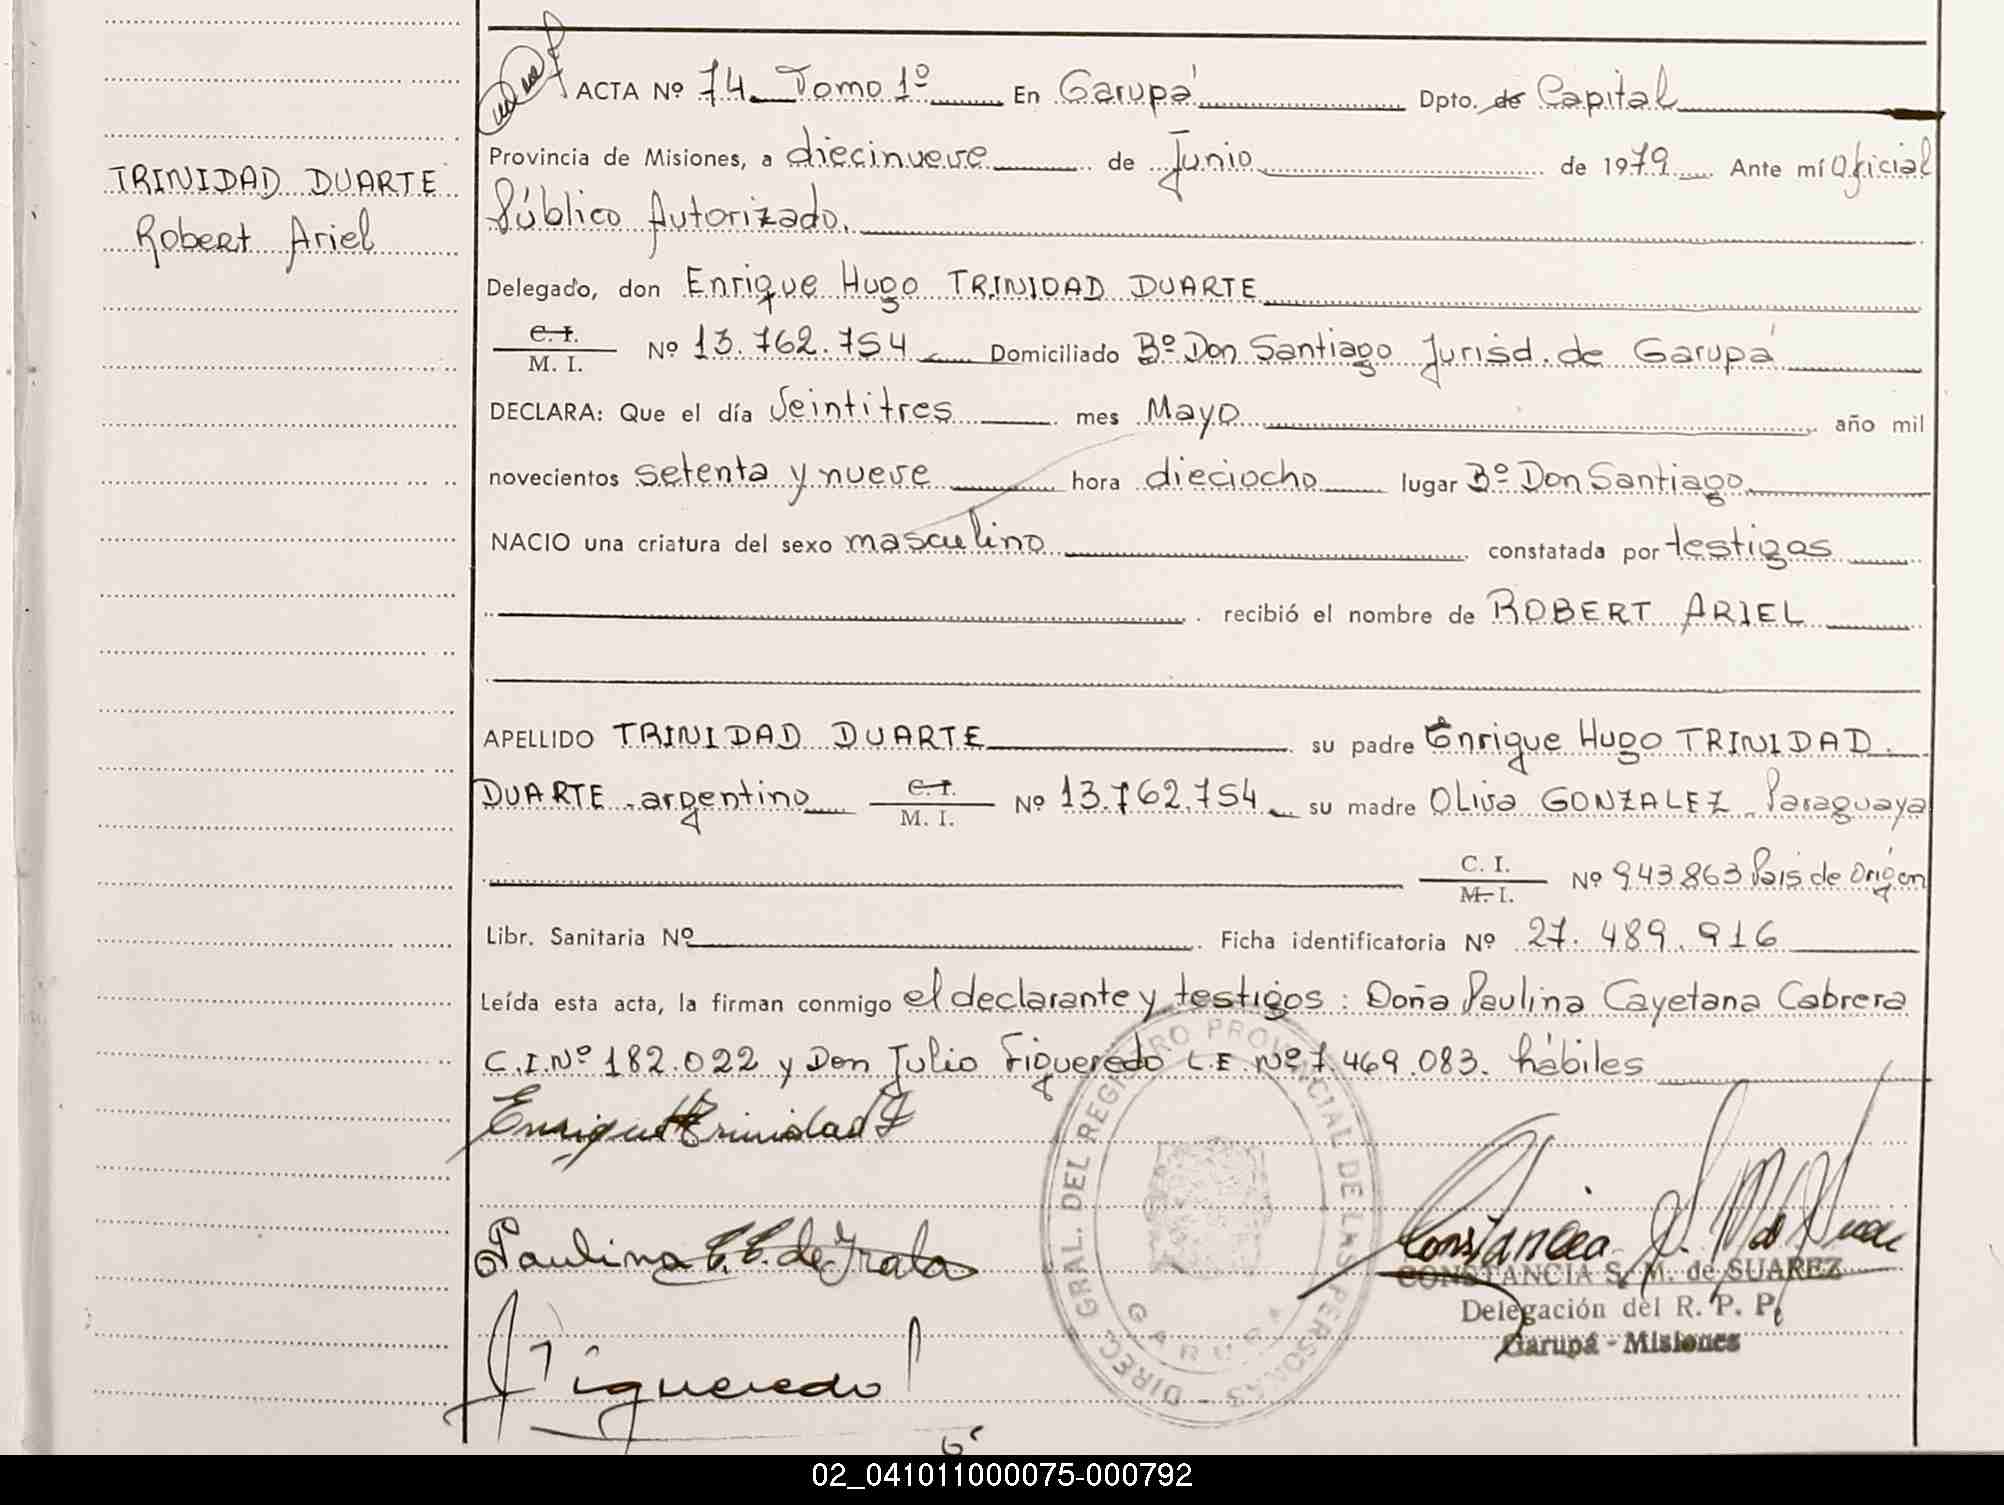 TRINIDAD DUARTE
Robert Ariel
ACTA Nº 74 Tomo 1º En Garupá Dpto. de Capital
Provincia de Misiones, a diecinueve de Junio de 1979 Ante mí Oficial
Público Autorizado.
Delegado, don Enrique Hugo TRINIDAD DUARTE
C. I.
M. I. Nº 13.762.754 Domiciliado Bº Don Santiago Jurisd. de Garupá
DECLARA: Que el día Veintitres mes Mayo año mil
novecientos setenta y nueve hora dieciocho lugar Bº Don Santiago
NACIO una criatura del sexo masculino constatada por testigos
recibió el nombre de ROBERT ARIEL
APELLIDO TRINIDAD DUARTE su padre Enrique Hugo TRINIDAD
DUARTE argentino C. I. M. I. Nº 13.762.754 su madre Oliva GONZALEZ Paraguaya
C. I. M. I. Nº 943863 País de Orígen
Libr. Sanitaria Nº Ficha identificatoria Nº 27.489.916
Leída esta acta, la firman conmigo el declarante y testigos: Doña Paulina Cayetana Cabrera
C.I.Nº 182.022 y Don Julio Figueredo L.E. Nº 7.469.083. hábiles
Enrique H Trinidad D
Paulina C. C. de
J Figueredo
DIREC. GRAL. DEL REGISTRO PROVINCIAL DE LAS PERSONAS
GARUPA
Constancia S. M. de Suarez
CONSTANCIA S. M. de SUAREZ
Delegación del R. P. P.
Garupá - Misiones
02_041011000075-000792